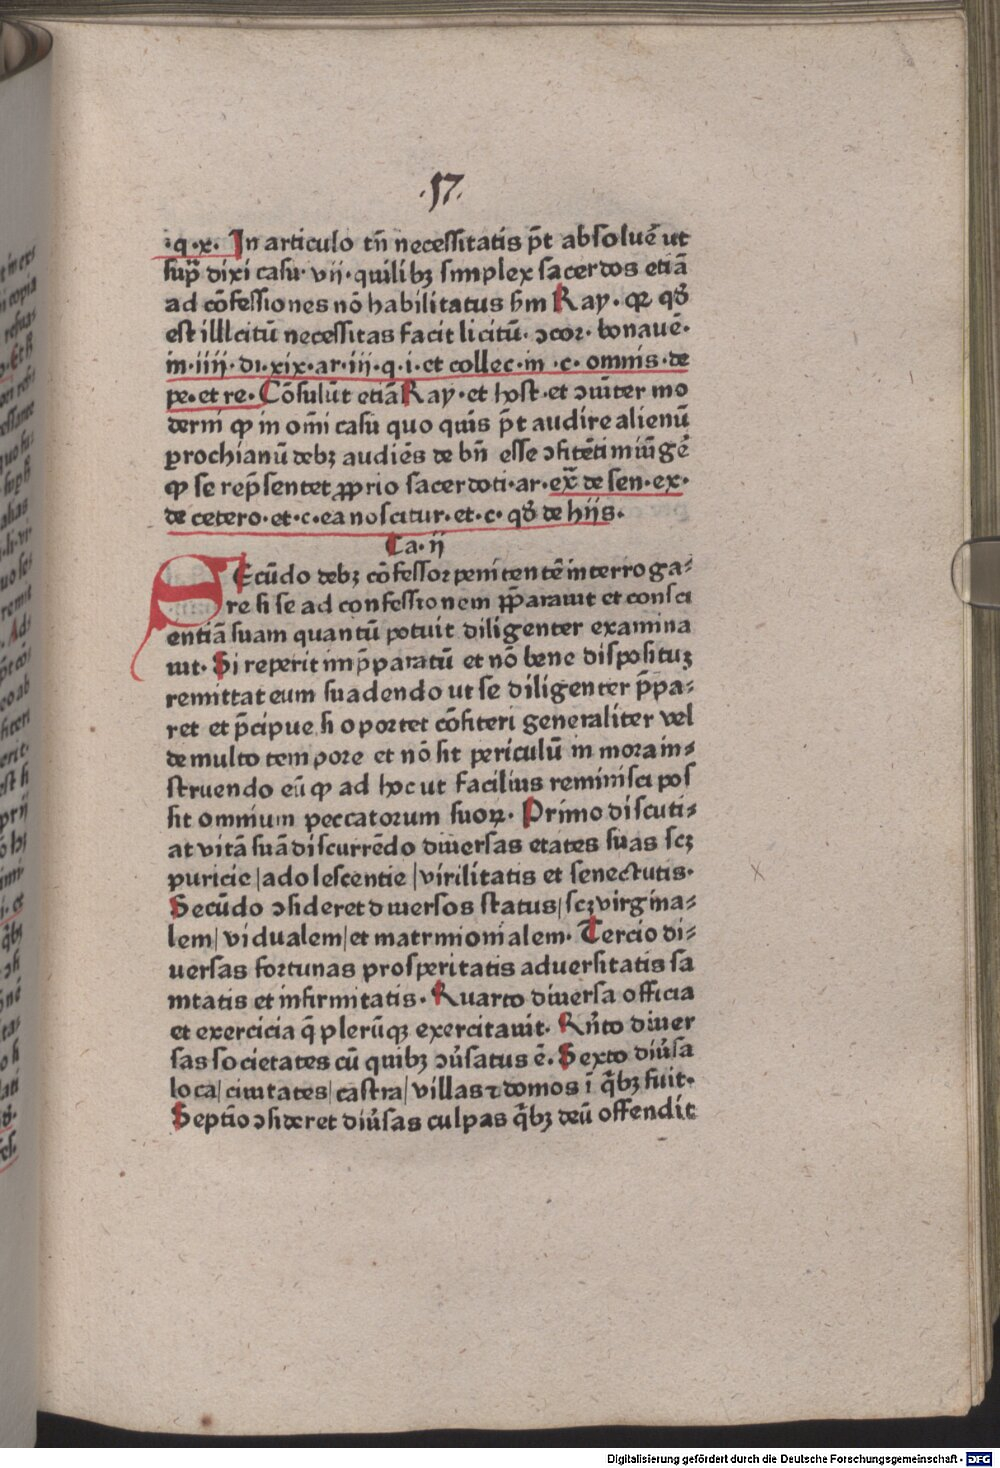 .57.
·q·x· In articulo tñ necessitatis p̃t absoluẽ ut
sup̃ dixi casu· vij·quilibꝫ simplex sacerdos etiã
ad cõfessiones nõ habilitatus ẜm Ray· qꝛ qđ
est illlcitũ necessitas facit licitũ· ↄcor· bonauẽ·
in·iiij·di·xix·ar·iij·q·i·et collec·in ·c· omnis·de
pe·et re· Cõsulũt etiã Ray·et host·et ↄñiter mo
derni ꝙ in om̃i casu quo quis p̃t audire alienũ
prochianũ debꝫ audiẽs de bñ esse ↄfitẽti iniũgẽ
ꝙ se rep̃sentet ꝓprio sacerdoti·ar·ex̃ de sen·ex·
de cetero·et·c·ea noscitur·et·c· qđ de hijs·
Ca·ij
SEcũdo debꝫ cõfessor penitentẽ interroga⸗
re si se ad confessionem p̃parauit et consci
entiã suam quantũ potuit diligenter examina
uit· Si reperit imp̃paratũ et nõ bene disposituꝫ
remittat eum suadendo ut se diligenter p̃pa⸗
ret et p̃cipue si oportet cõfiteri generaliter vel
de multo tempore et nõ sit periculũ in mora in⸗
struendo eũ ꝙ ad hoc ut facilius reminisci pos
sit omnium peccatorum suoꝝ· Primo discuti⸗
at vitã suã discurrẽdo diuersas etates suas scꝫ
puricie|adolescentie|virilitatis et senectutis·
Secũdo ↄsideret diuersos status|scꝫ virgina⸗
lem|vidualem|et matrmionialem· Tercio di⸗
uersas fortunas prosperitatis aduersitatis sa
nitatis et infirmitatis· Ruarto diuersa officia
et exercicia q̃ plerũqꝫ exercitauit· Rñto diuer
sas societates cũ quibꝫ ↄũsatus ẽ· Sexto diũsa
loca|ciuitates|castra|villas ⁊ domos ĩ q̃bꝫ fuit·
Septĩo ↄsideret diũsas culpas q̃bꝫ deũ offendit
Digitalisierung gefördert durch die Deutsche Forschungsgemeinschaft - DFG